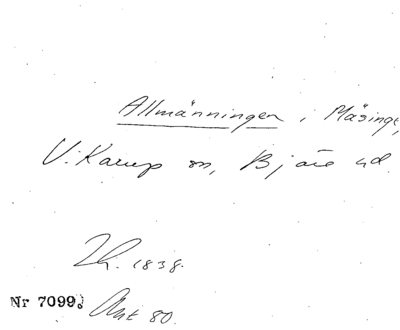 Allmänningen i Mäsinge,
V. Karup sn, Bjäre hd.
Lh. 1838.
Nr 7099. Akt 80.